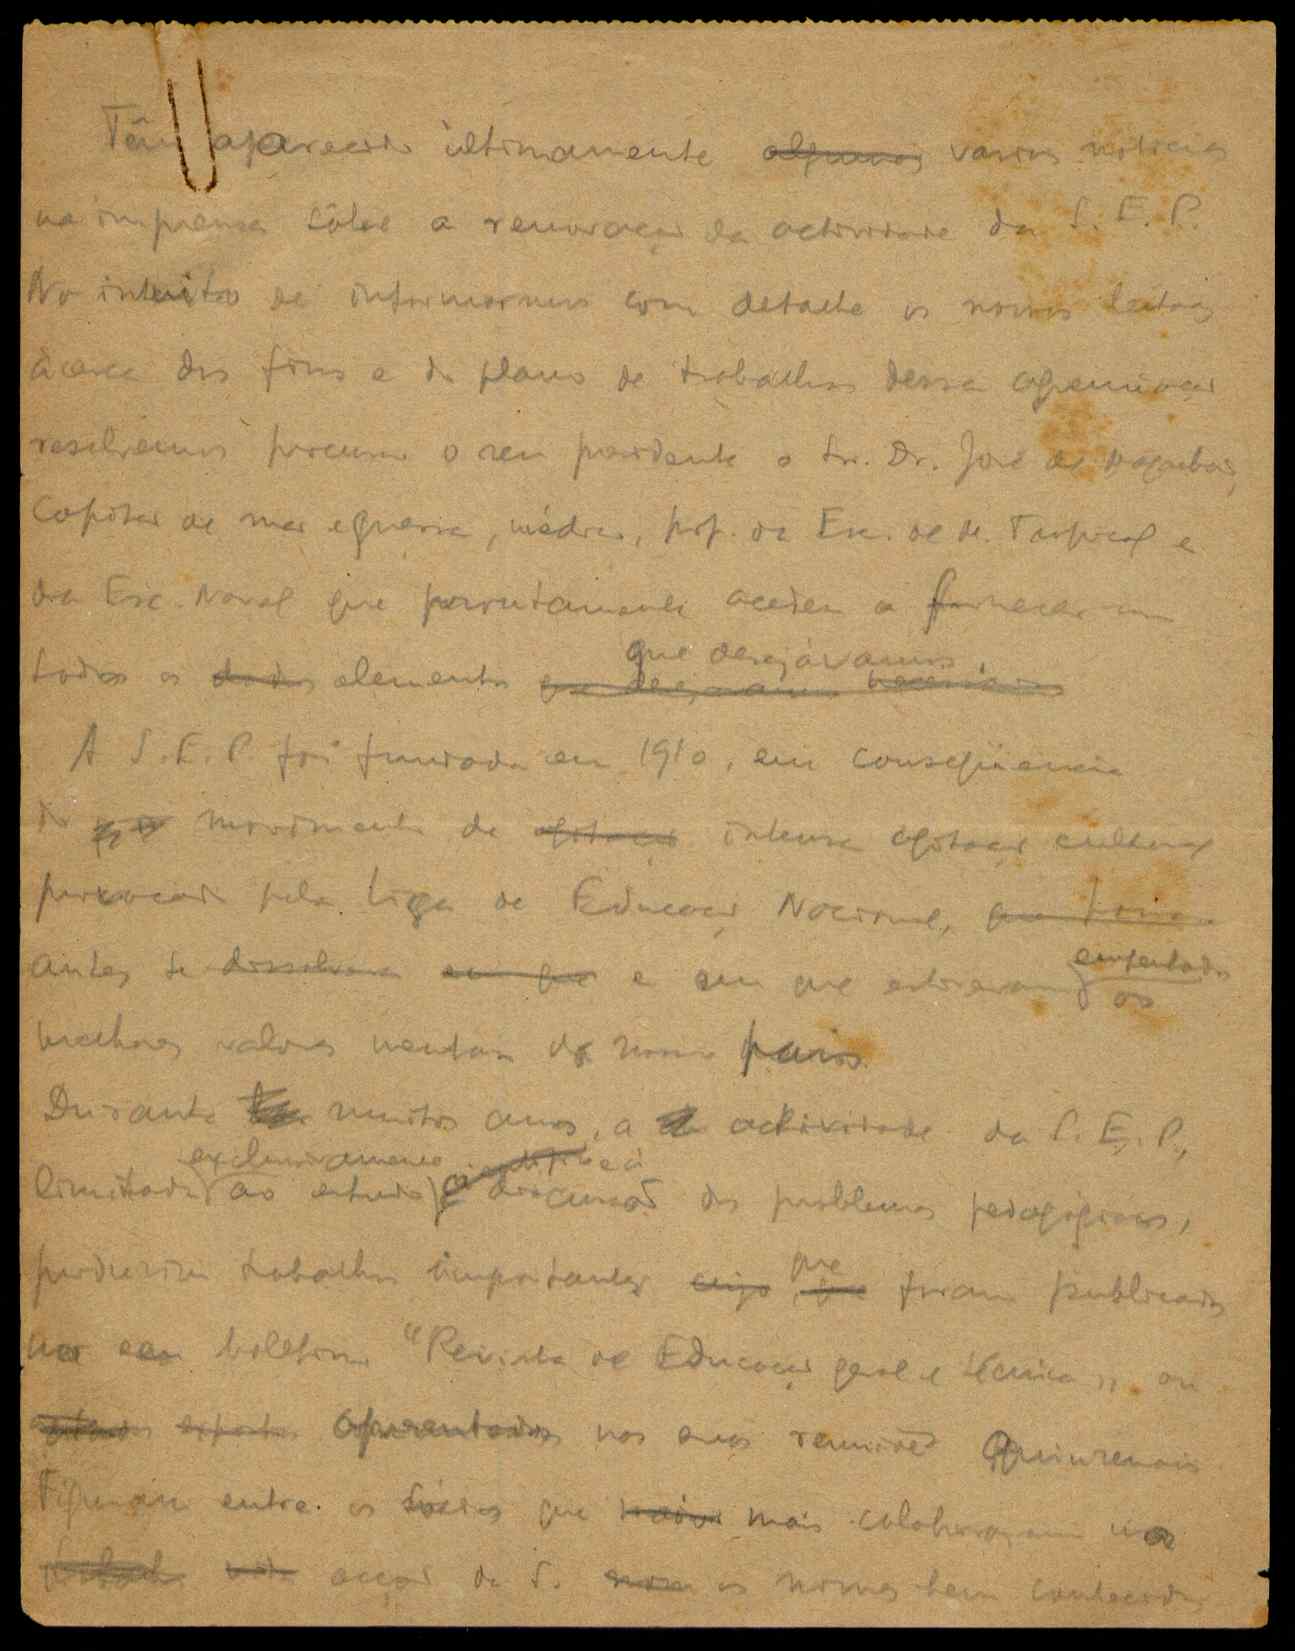 Têm aparecido ùltimamente algumas varias noticias
na imprensa sôbre a renovação da actividade da S. E. P.
No intuito de informarmos com detalhe os nossos leitores
àcerca dos fins e do plano de trabalhos dessa agremiação
resolvemos procurar o seu presidente o Sr. Dr. José de Magalhães,
Capitão de mar e guerra, médico, prof. da Esc. de M. Tropical e
da Esc. Naval que prontamente acedeu a fornecer-nos
todos os dados elementos que desejavamos necessarios
que desejávamos.
A S. E. P. foi fundada em 1910, em conseqüencia
do movimento de agitação intensa agitação cultural
provocado pela Liga de Educação Nacional, que havia
antes se dissolvera em que e em que estiveram os
empenhados
melhores valores mentais do nosso paiz.
Durante muitos anos, a actividade da S. E. P.,
exclusivamente
limitada ao estudo e discussão dos problemas pedagógicos,
produziu trabalhos importantes cujo que foram publicados
que
no seu boletim "Revista de Educação geral e técnica", ou
expostos apresentados nas suas reuniões quinzenais
Figuram entre os sócios que mais colaboraram na
trabalho vida acção da S. nom os nomes bem conhecidos